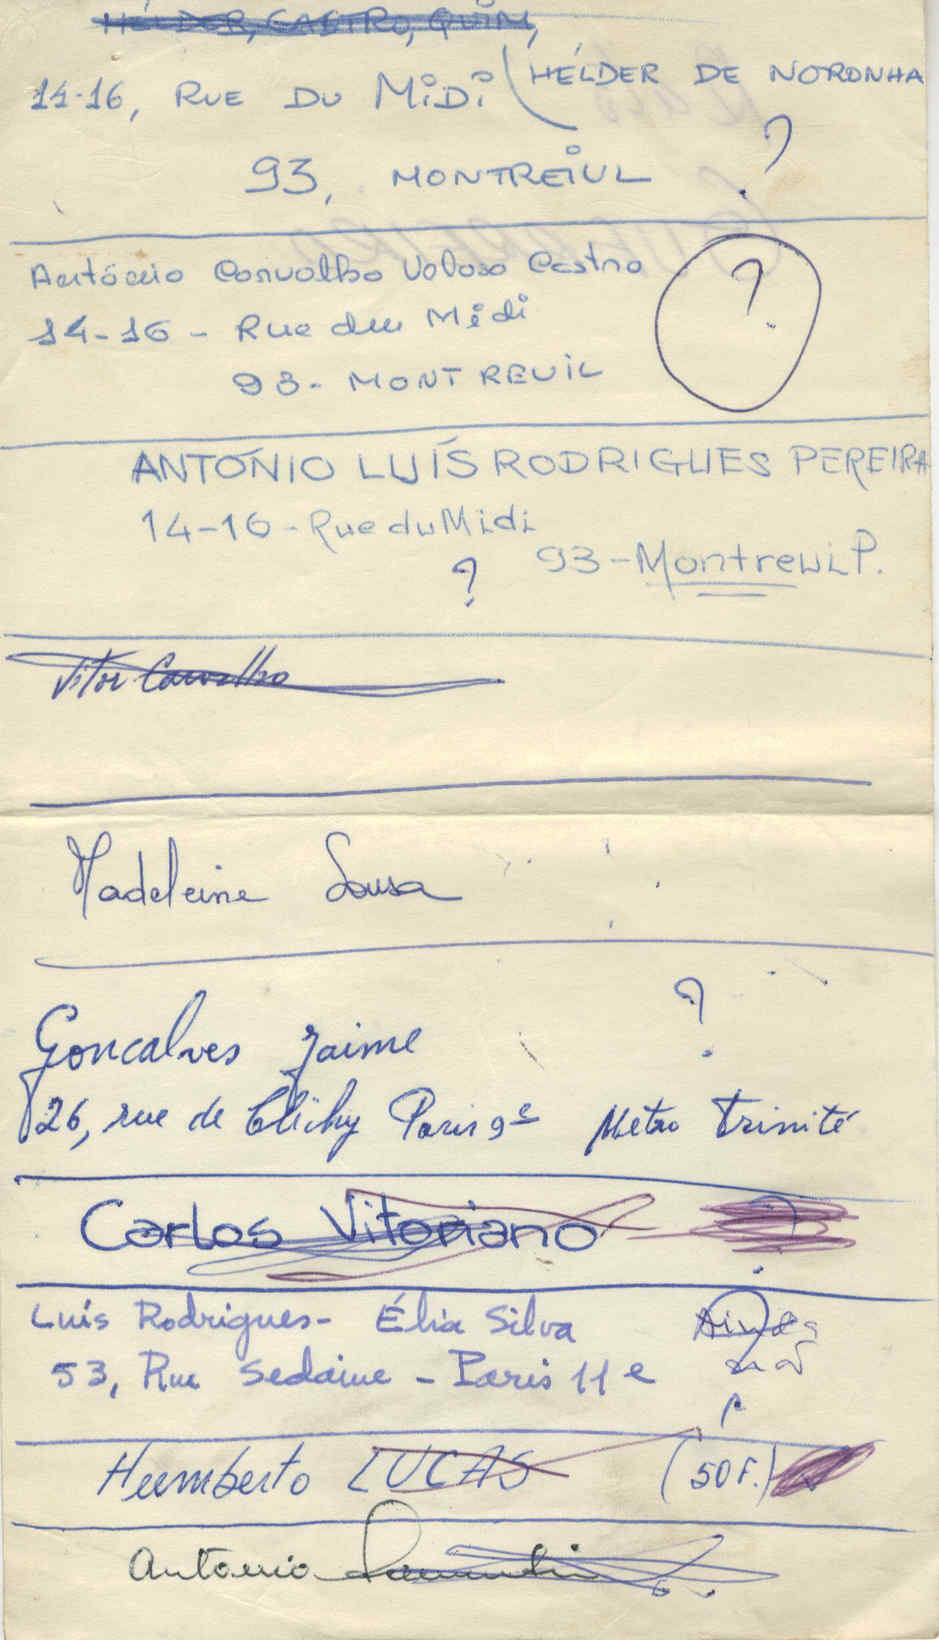 HÉLDER, CASTRO, QUIM,
14-16, RUE DU MIDI (HÉLDER DE NORONHA
93, MONTREIUL ?
António Carvalho Veloso Castro
14-16 - Rue du Midi ?
93 - MONTREUIL
ANTÓNIO LUÍS RODRIGUES PEREIRA
14-16 - Rue du Midi
93 - Montreuil.
?
Vitor Carvalho
Madeleine Sousa
?
Goncalves Jaime
26, rue de Clichy Paris 9e Metro Trinité
Carlos Vitoriano
Luís Rodrigues - Élia Silva Ainda
53, Rue Sedaine - Paris 11e não
Humberto LUCAS (50 F.)
Antonio